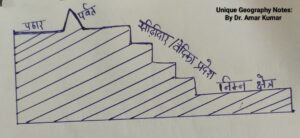 Unique Geography Notes:
By Dr. Amar Kumar
पठार
पर्वत
सीढ़ीदार/वेदिका प्रदेश
निम्न क्षेत्र